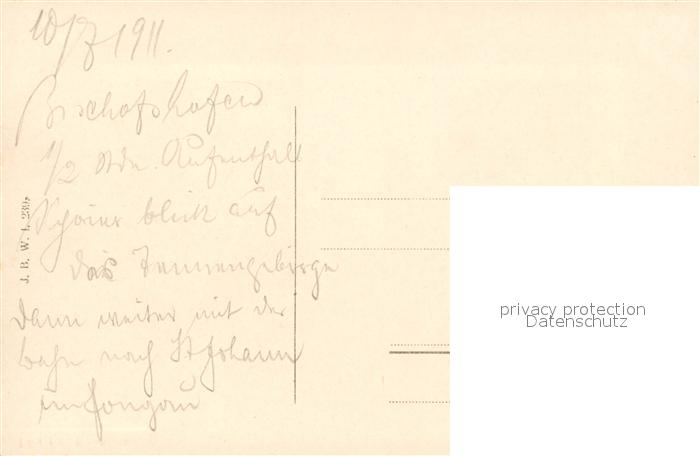 10/7 1911.
Bischofshofen
1/2 Stde. Aufenthalt
Schöner blick auf
das Tennengebirge
dann weiter mit der
bahn nach St Johann
im Pongau
J. B. W. I.
privacy protection
Datenschutz